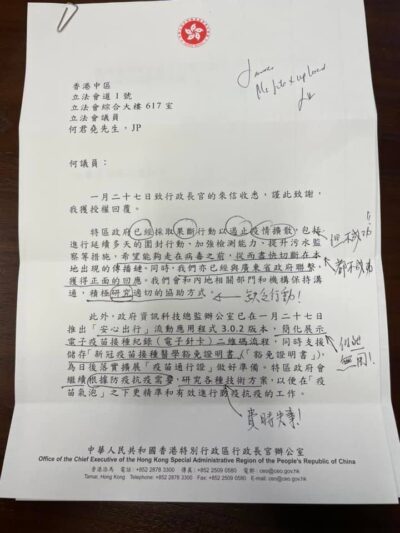 James
Pls file & upload
香港中區
立法會道 1 號
立法會綜合大樓 617 室
立法會議員
何君堯先生, JP
何議員：
一月二十七日致行政長官的來信收悉，謹此致謝，
我獲授權回覆。
特區政府已經採取果斷行動以遏止疫情擴散，包括
進行延續多天的圍封行動、加強檢測能力、提升污水監
察等措施，希望能夠走在病毒之前，從而盡快切斷在本
地出現的傳播鏈。同時，我們亦已經與廣東省政府聯繫，
獲得正面的回應。我們會和內地相關部門和機構保持溝
通，積極研究適切的協助方式。
但不成功
都不成事
缺乏行動！
此外，政府資訊科技總監辦公室已在一月二十七日
推出「安心出行」流動應用程式 3.0.2 版本，簡化展示
電子疫苗接種紀錄（電子針卡）二維碼流程，同時支援
儲存「新冠疫苗接種醫學豁免證明書」（「豁免證明書」），
為日後落實擴展「疫苗通行證」做好準備。特區政府會
繼續根據防疫抗疫需要，研究各種技術方案，以便在「疫
苗氣泡」之下更精準和有效進行防疫抗疫的工作。
無用！
費時失事！
中華人民共和國香港特別行政區行政長官辦公室
Office of the Chief Executive of the Hong Kong Special Administrative Region of the People's Republic of China
香港添馬 電話：+852 2878 3300 傳真：+852 2509 0580 電郵：ceo@ceo.gov.hk
Tamar, Hong Kong Telephone: +852 2878 3300 Fax: +852 2509 0580 E-mail: ceo@ceo.gov.hk